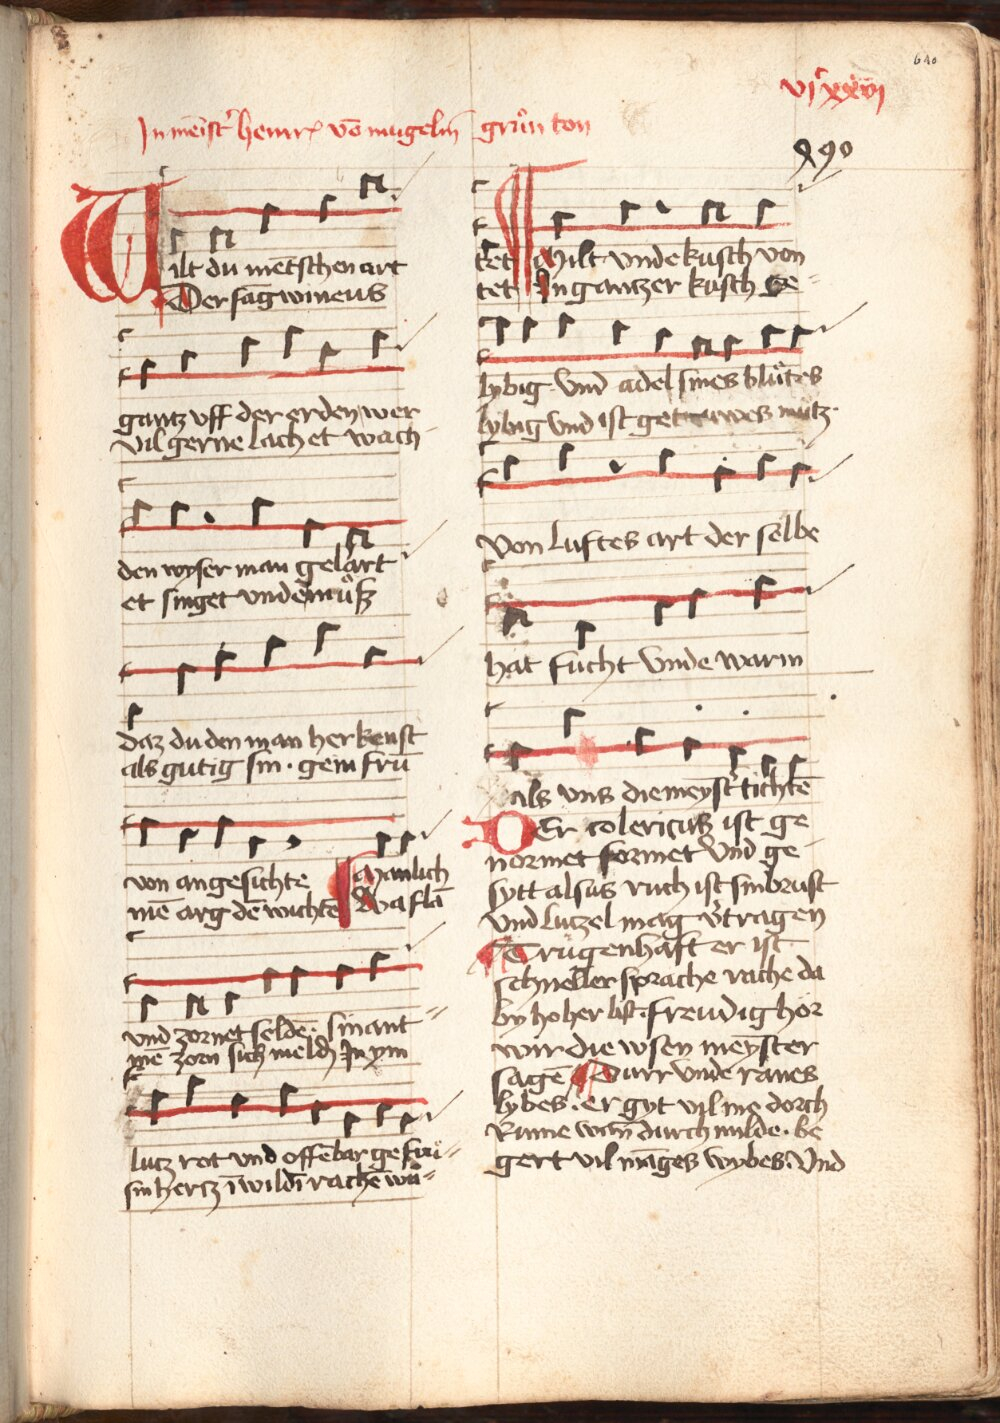 640
vjͨ xxxvj
In meist̾ heinr̾ vō mugelin grůn ton
790
Wilt du mētschen art
Der sāgwineus
gantz vff der erden wer
vil gerne lachet wach
den wyser man gelart
et singet vndē můſz
daz du den man herkenst
als gutig sin · gem frū
von angesichte Manlich
mē arg dē wichtē Da flā
vnd zornet seldē · sin ant =
mē zorn sich meldē In ym
lutz rot vnd offēbar ge frū =
sin hertz in wildī rachē wů =
tet Milt vnde kusch von
tet In gantzer kusch ge =
lybig · vnd adel sines blůtes
lybig vnd ist getruwes můtz ·
von luftes art der selbe
hat fucht vnde warm
als vns die meyst̾ tichtē
Der colericus ist ge
normet formet vnd ge -
sytt alsus ruch ist sin brust
vnd lutzel mag v̾tragen
Trugenhaft er ist
schneller sprache rache da
by hoher list · freudig hör
wir die wsen meyster
sagē Durr vnde ranes
lybes · er gyt vil me dorch
Rume wan̄ durch milde · be
gert vil māges wybes · Vnd